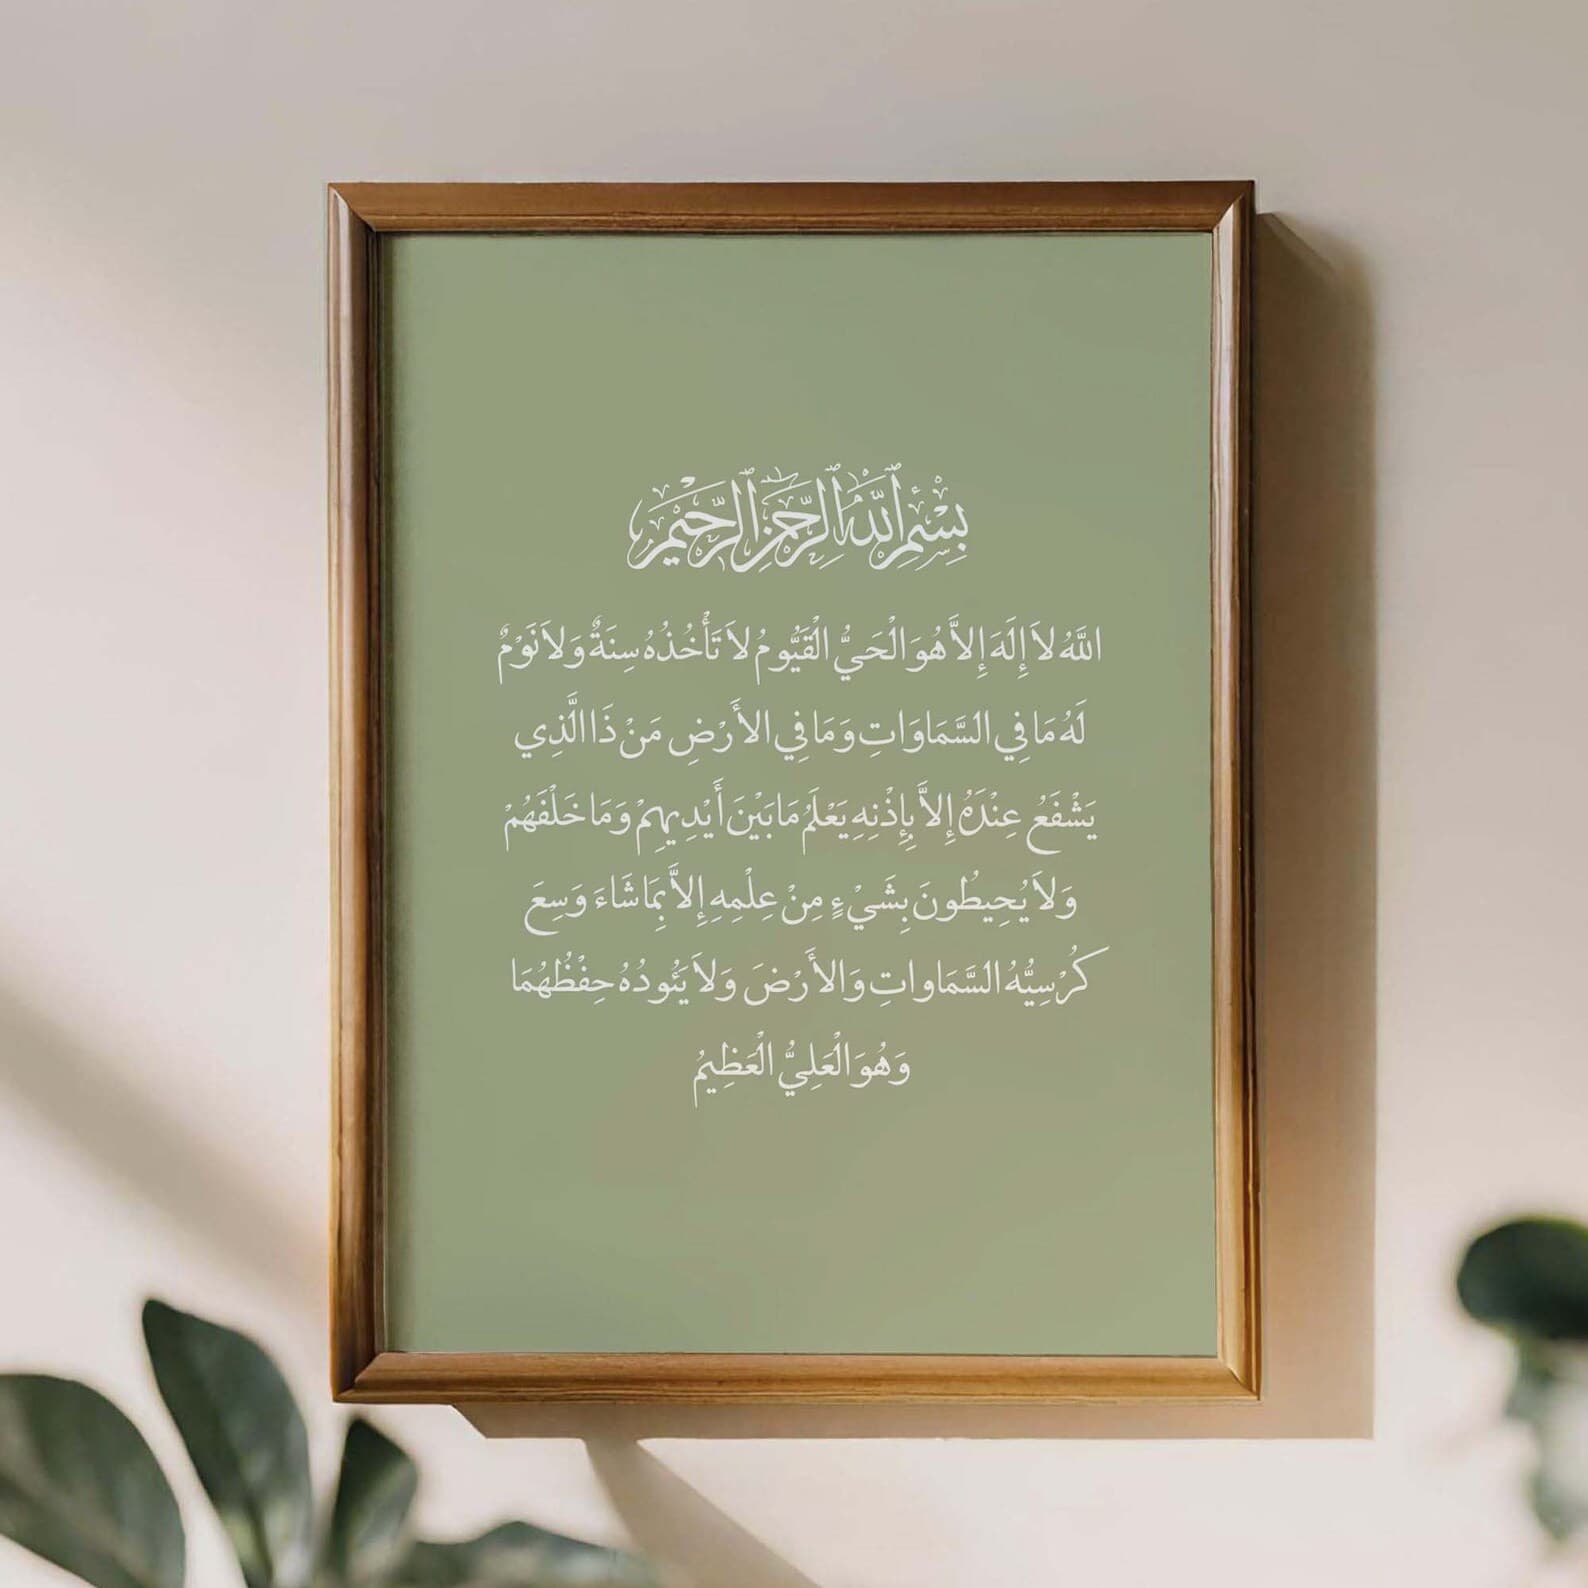 بِسْمِ ٱللَّهِ ٱلرَّحْمَٰنِ ٱلرَّحِيمِ
اللَّهُ لاَ إِلَهَ إِلاَّ هُوَ الْحَيُّ الْقَيُّومُ لاَ تَأْخُذُهُ سِنَةٌ وَلاَ نَوْمٌ
لَهُ مَا فِي السَّمَاوَاتِ وَمَا فِي الأَرْضِ مَنْ ذَا الَّذِي
يَشْفَعُ عِنْدَهُ إِلاَّ بِإِذْنِهِ يَعْلَمُ مَا بَيْنَ أَيْدِيهِمْ وَمَا خَلْفَهُمْ
وَلاَ يُحِيطُونَ بِشَيْءٍ مِنْ عِلْمِهِ إِلاَّ بِمَا شَاءَ وَسِعَ
كُرْسِيُّهُ السَّمَاواتِ وَالأَرْضَ وَلاَ يَئُودُهُ حِفْظُهُمَا
وَهُوَ الْعَلِيُّ الْعَظِيمُ